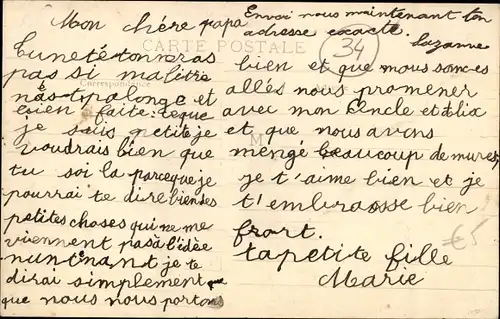 Mon chère papa
Envoi nous maintenant ton
adresse exacte.
Suzanne
34
CARTE POSTALE
Correspondance
tu neté tonneras
pas si ma létre
nés t pa longe et
bien faite. ceque
je suis petite je
voudrais bien que
tu soi la parceque je
pourrai te dire bien des
petites choses qui ne me
viennent pas à l'idée
nuntnant je te
dirai simplement
que nous nous portons
bien et que nous somes
allés nous promener
avec mon Oncle et Félix
et que nous avons
mengé beaucoup de mures,
je t'aime bien et je
t'embrasse bien
frort.
ta petite fille
Marie
€5